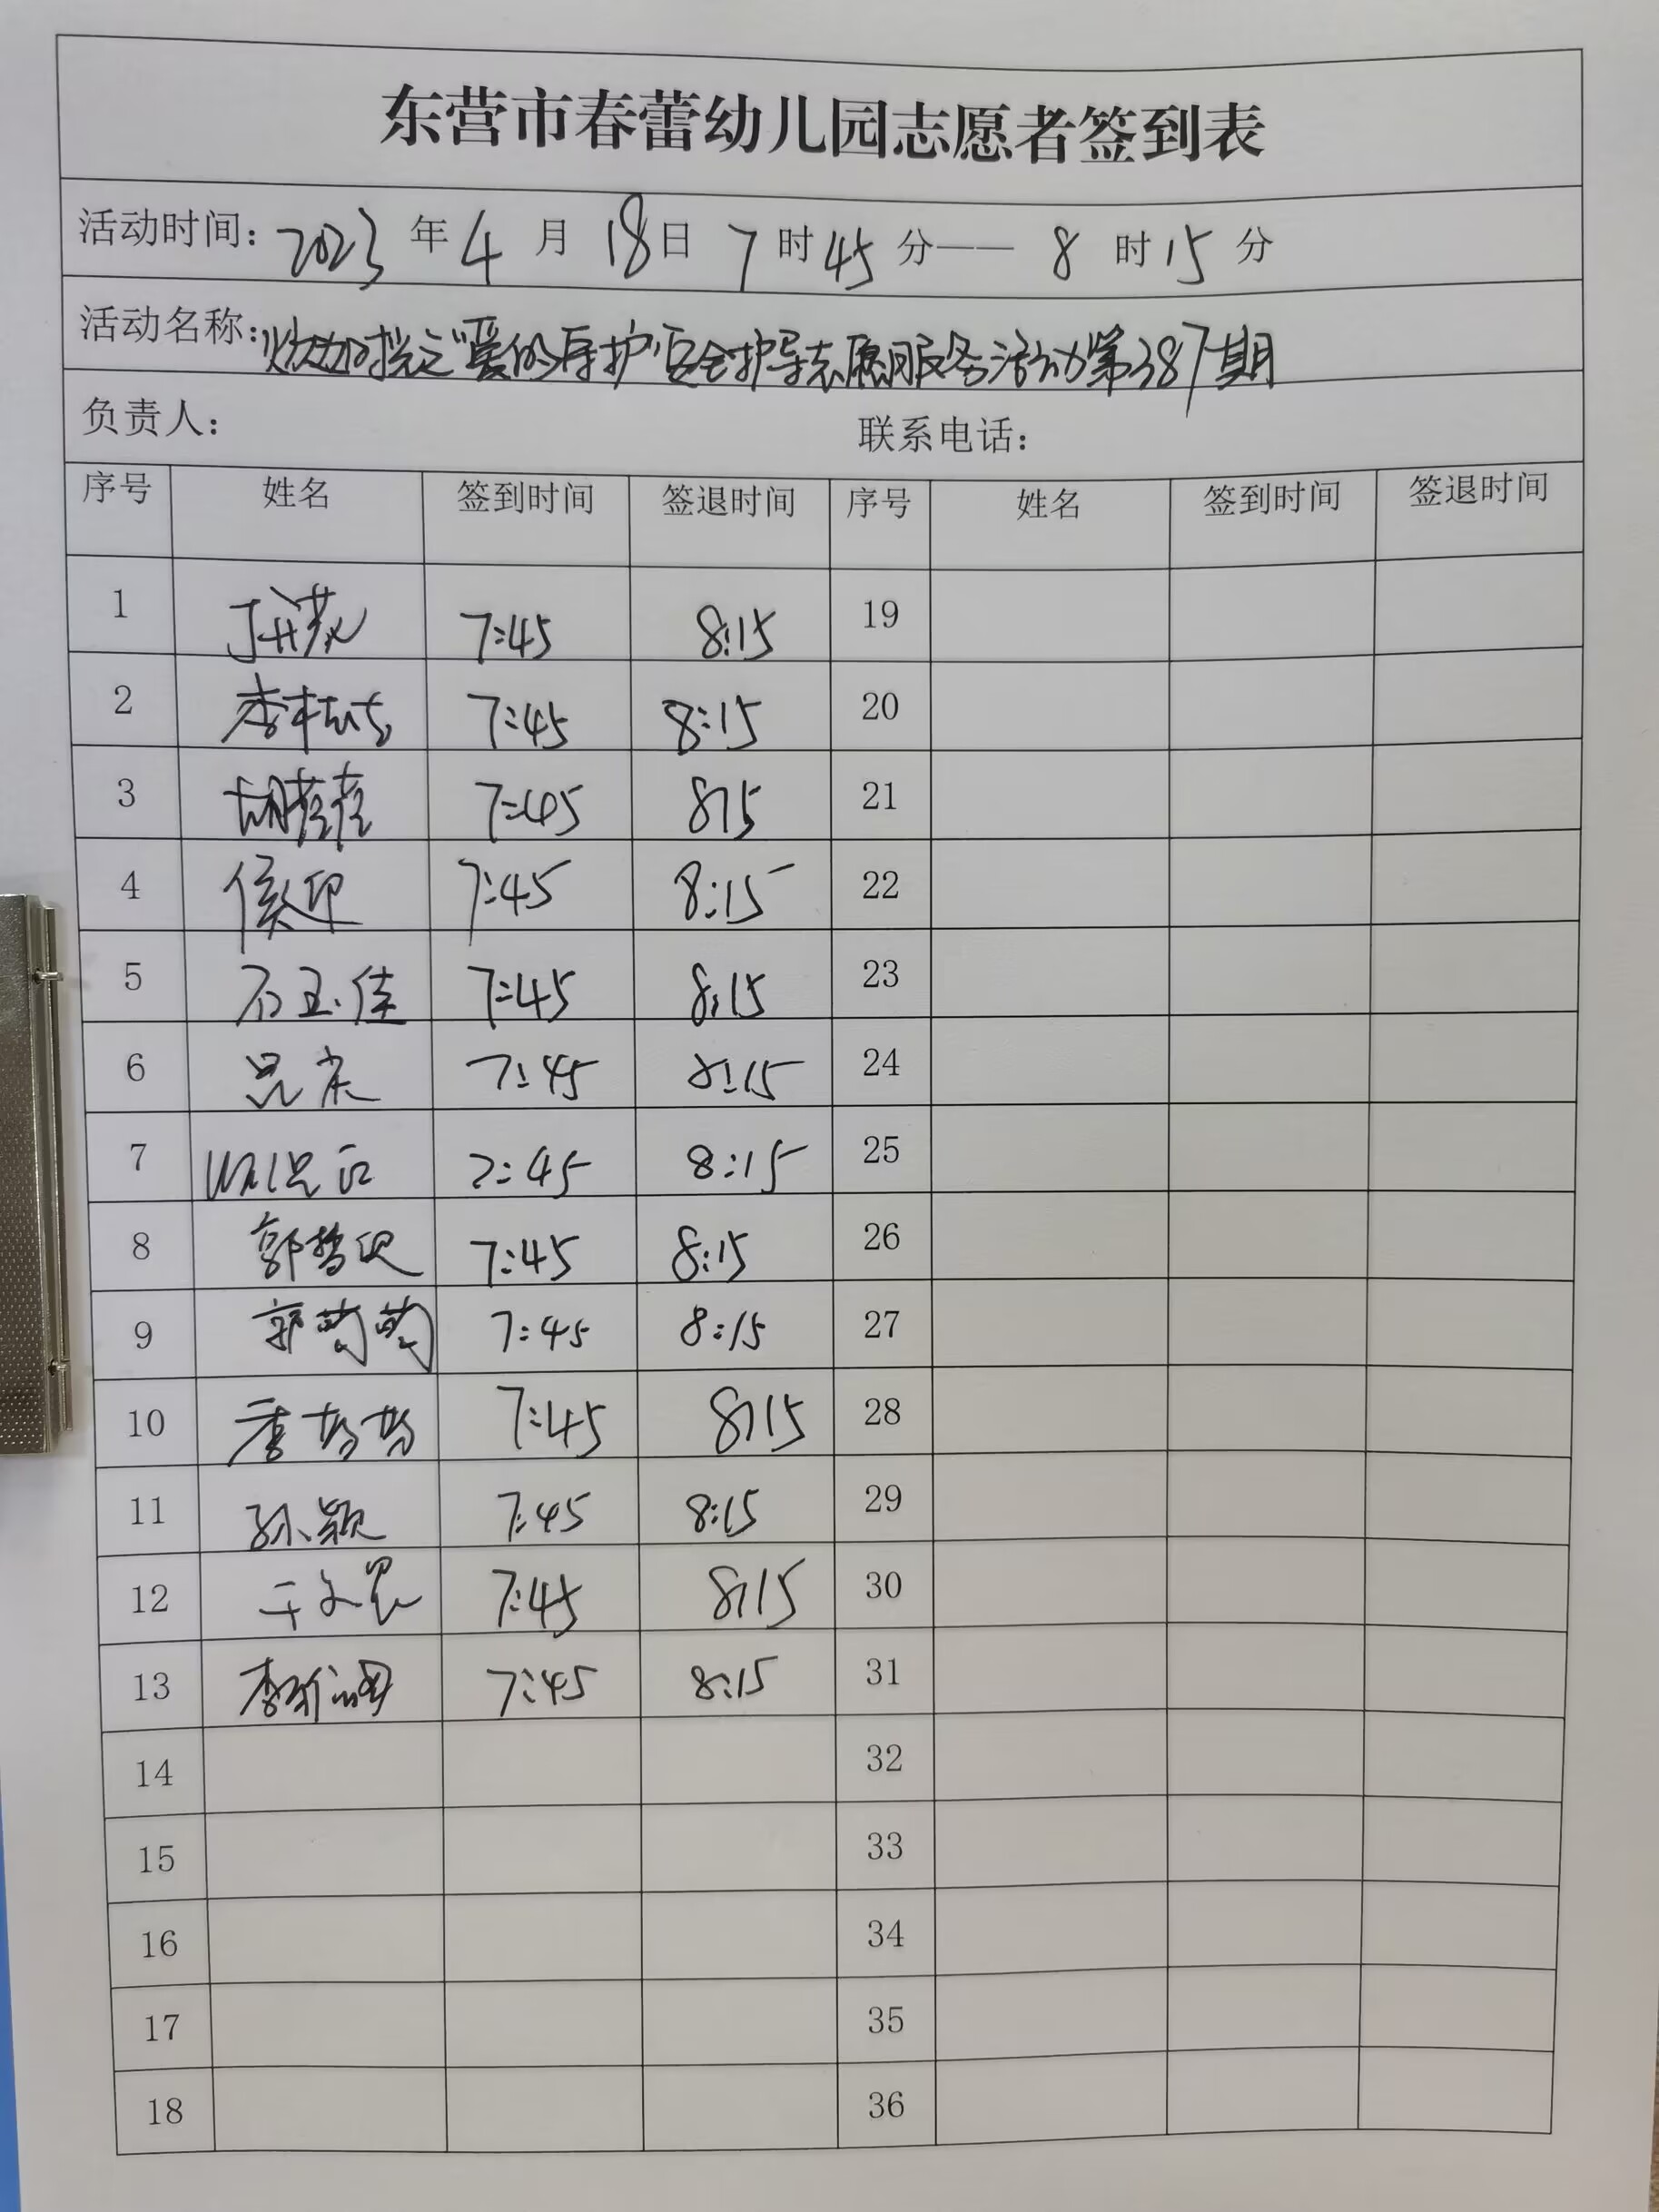 东营市春蕾幼儿园志愿者签到表
活动时间: 2023 年 4 月 18 日 7 时 45 分—— 8 时 15 分
活动名称: "爱的守护"安全护导志愿服务活动第387期
负责人: 联系电话:
序号 姓名 签到时间 签退时间 序号 姓名 签到时间 签退时间
1 7:45 8:15 19
2 李 7:45 8:15 20
3 胡蓓蓓 7:45 815 21
4 侯迎 7:45 8:15 22
5 石玉佳 7:45 8:15 23
6 7:45 8:15 24
7 7:45 8:15 25
8 郭 7:45 8:15 26
9 郭萄萄 7:45 8:15 27
10 7:45 8:15 28
11 孙颖 7:45 8:15 29
12 7:45 8:15 30
13 李 7:45 8:15 31
14 32
15 33
16 34
17 35
18 36